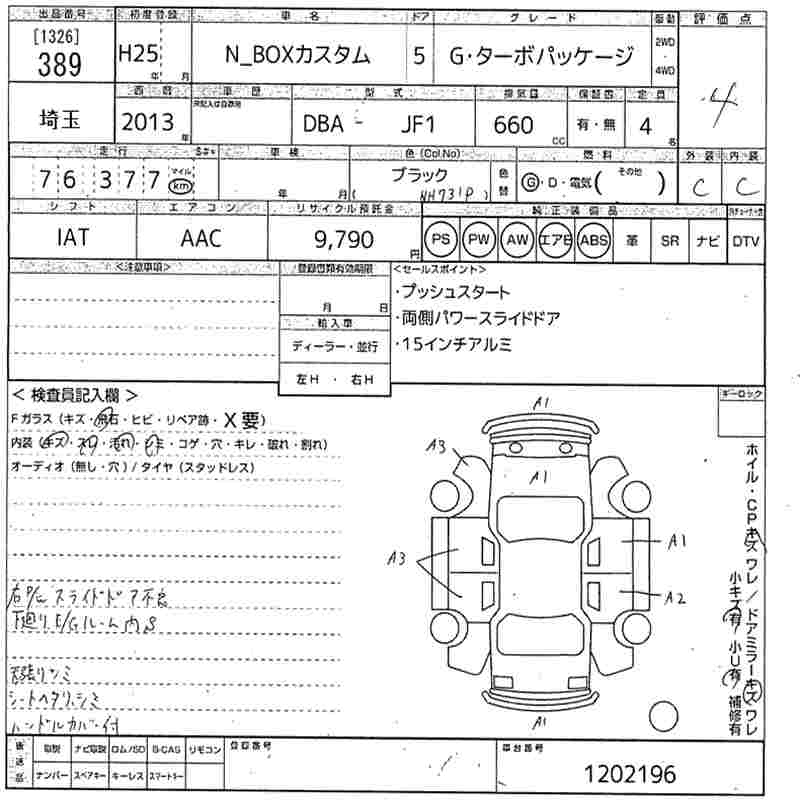 出品番号 初度登録 車名 ドア グレード 駆動 評価点
[1326] 389 H25 年 月 N_BOXカスタム 5 G・ターボパッケージ 2WD・4WD 4
西暦 車歴 型式 排気量 保証書 定員
埼玉 2013 年 未記入は自家用 DBA - JF1 660 cc 有・無 4 名
走行 車検 色(Col.No) 燃料 外装 内装
76,377 マイル km 年 月 ブラック (NH731P) 色替 G・D・電気( その他 ) C C
シフト エアコン リサイクル預託金 純正装備品
IAT AAC 9,790 円 PS PW AW エアB ABS 革 SR ナビ DTV
<注意事項> 登録書類有効期限 <セールスポイント>
月 日 ・プッシュスタート
輸入車 ・両側パワースライドドア
ディーラー・並行 ・15インチアルミ
左H ・ 右H
<検査員記入欄> キーロック
Fガラス(キズ・飛石・ヒビ・リペア跡・X要)
内装(キズ・スレ・汚れ・シミ・コゲ・穴・キレ・破れ・割れ)
オーディオ(無し・穴)/タイヤ(スタッドレス)
A1
A3
A1
A3
A1
A2
A1
ホイル・CPキズワレ/ドアミラーキズワレ
小キズ有/小U有/補修有
右P/Wスライドドア不良
下廻りE/Gルーム内S
天張りシミ
シートヘタリ、シミ
ハンドルカバー付
後送品 取説 ナビ取説 ロム/SD B-CAS リモコン 登録番号 車台番号
ナンバー スペアキー キーレス スマートキー 1202196